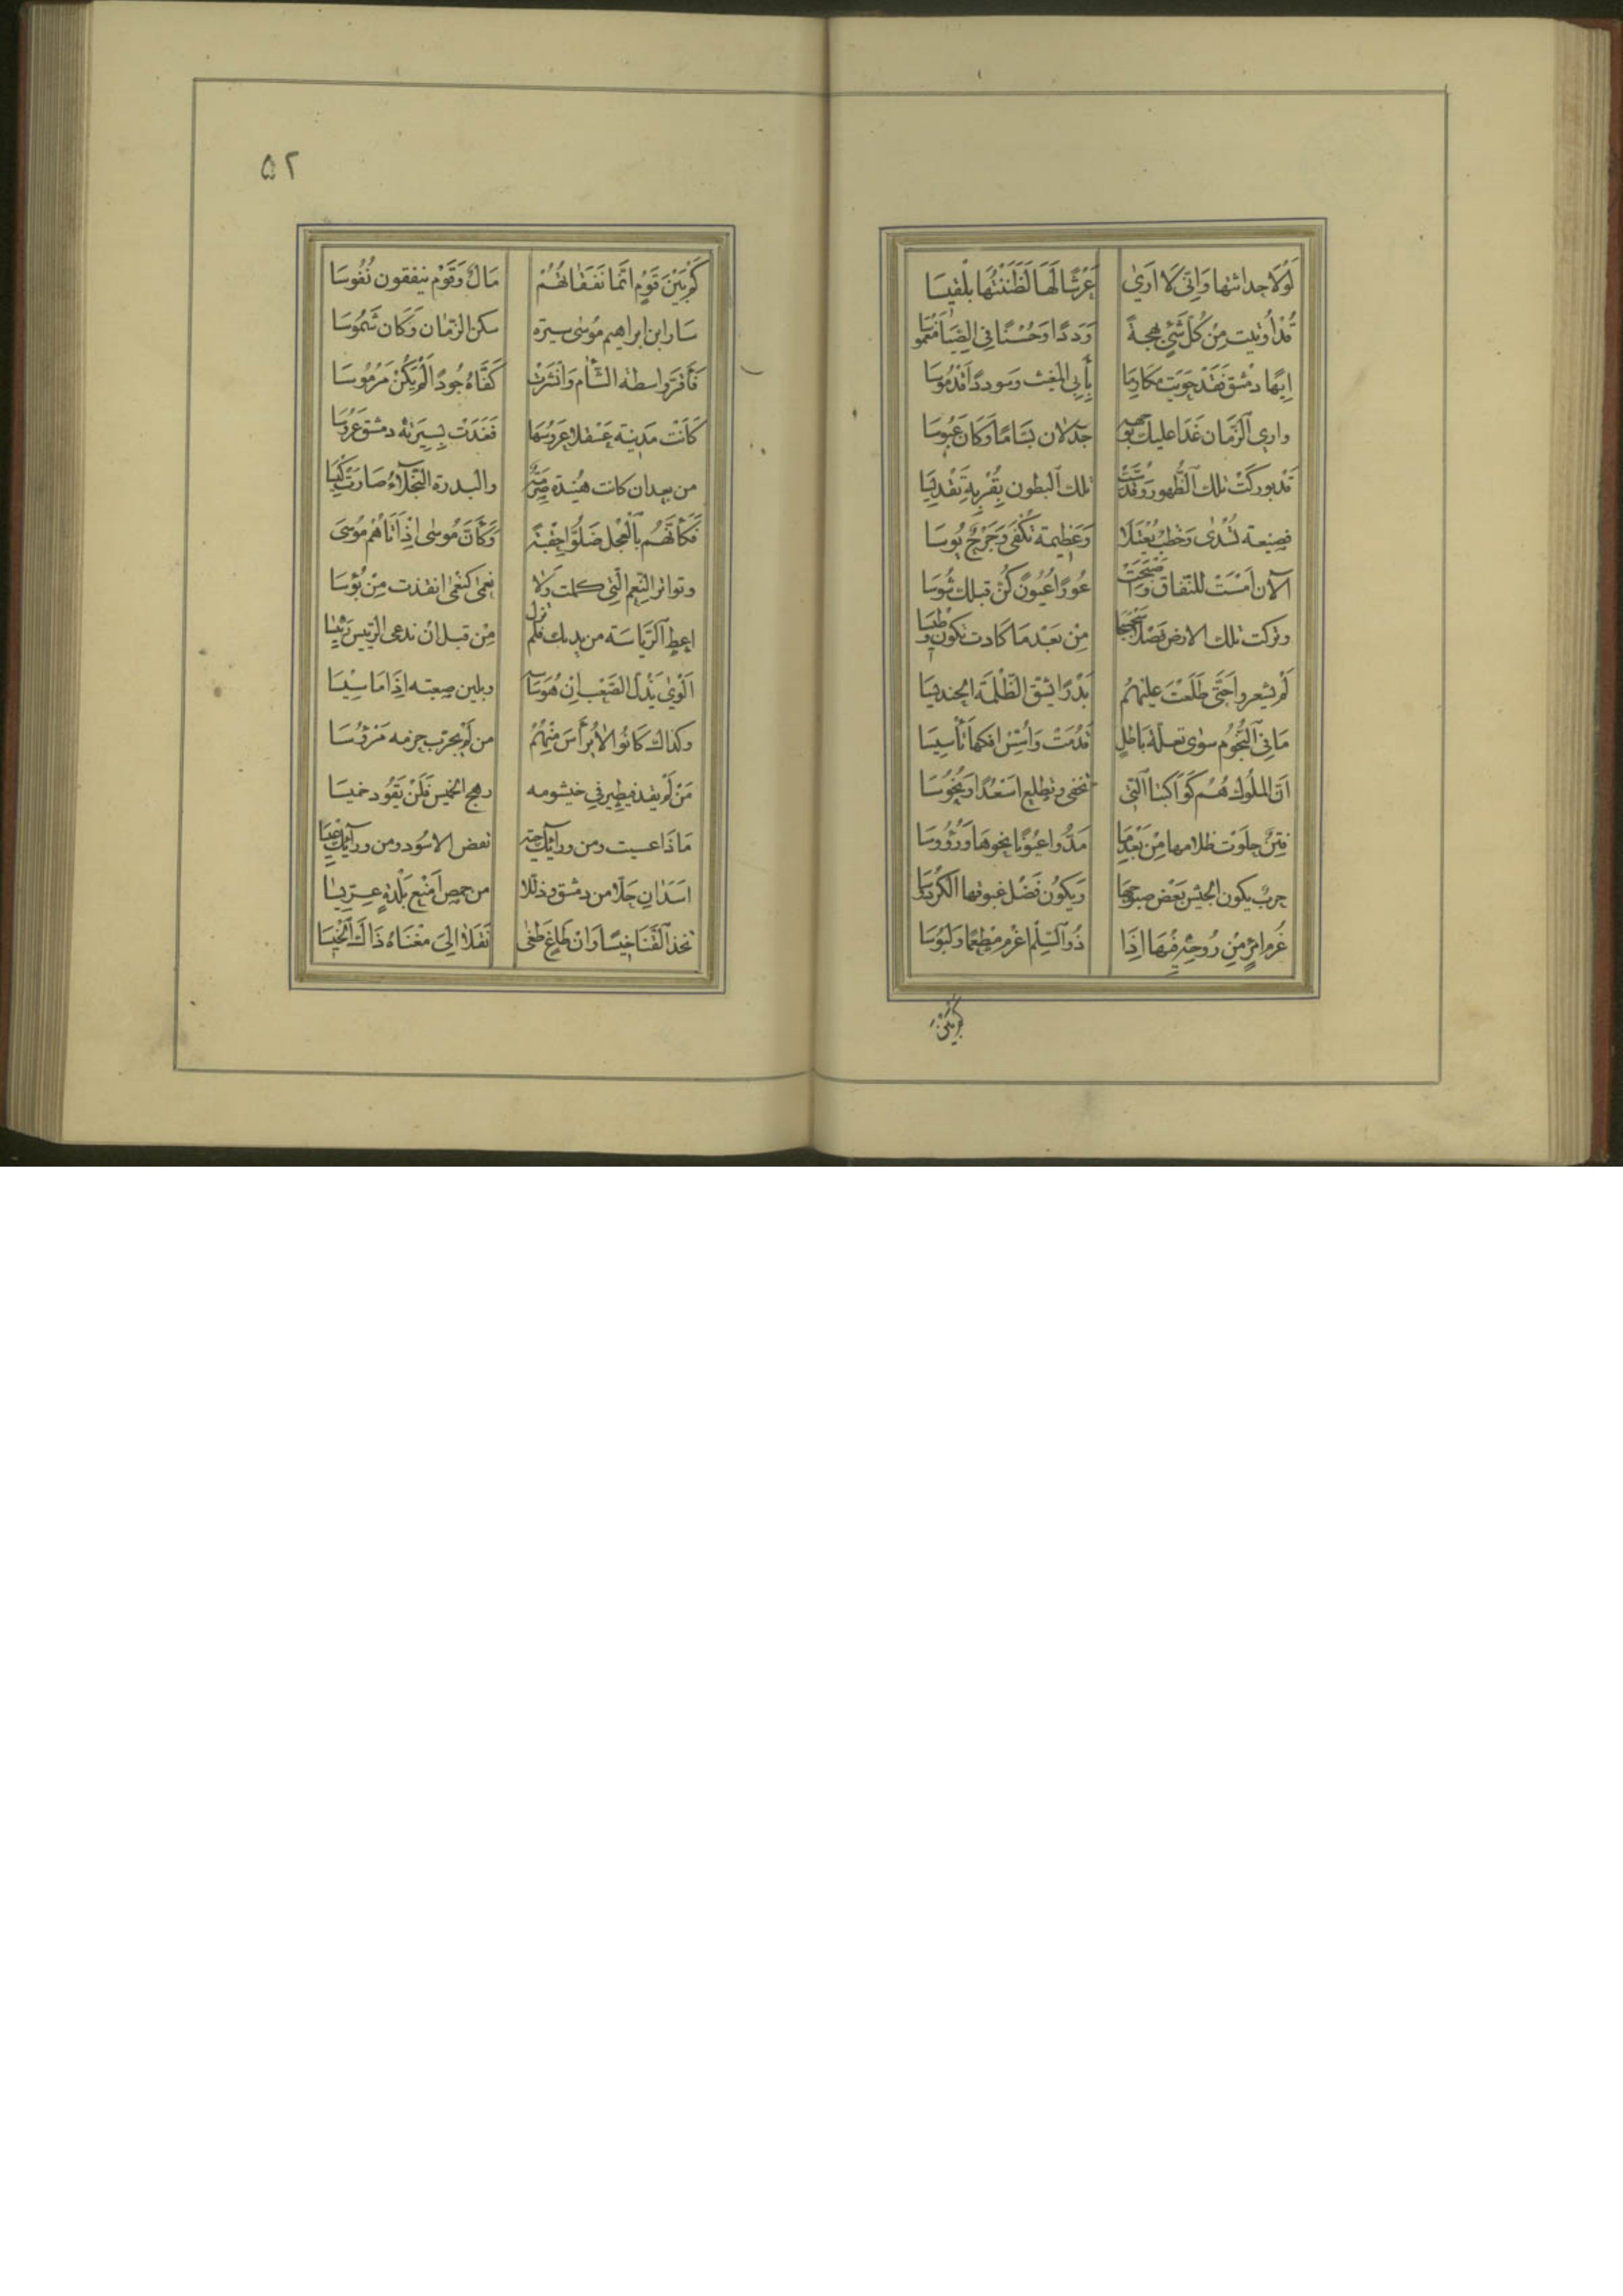 لَوْلَا حداثتها وَاِنّى لَا اَرىٰ عَرْشًا لَهَا لَظَنَنْتُهَا بَلْقيسَا
قَدْ اُوتيت مِنْ كُلّ شَئٍ بهجةً وَدَدًا وَحُسْنًا فى الصِّبَا مَغْمُوسَا
اِيهًا دمَشْقُ فَقَدْ حَوَيْتِ مكَارِمًا بِأَبِى المُغيث وَسوددًا قُدْمُوسَا
وارى الزَّمَان غَدَا عليك بوجهه جذلان بَسّامًا وَكَانَ عَبُوسَا
قَدْ بوركَتْ تلك الظُّهور وَقُدِّسَتْ تلك البُطون بِقُرْبِهِ تَقْديسَا
فصنيعة تُسْدٰى وَخَطبٌ يُعْتَلَا وَعَظيمة تُكْفَى وَجَرْحٌ يُوسَا
الآن اَمْسَتْ للنّفاق وَاَصْبَحَتْ عُورًا عُيُونٌ كُنَّ قبلك شُوسَا
وتركت تلك الارض فَصْلًا سَجْسَجًا مِنْ بَعْدِ مَا كَادت تكُون وَطِيسَا
لَمْ يشعروا حَتّى طَلَعْتَ عليْهُم بَدْرًا يشقّ الظُّلمَة الحنديسَا
مَا فى النّجُوم سوٰى تعلّة بَاطلٍ قَدُمَتْ وَاُسِّسَ افكها تَأسيسَا
اَنّ المُلوك هُم كَوَاكبنا الّتى تخفى وتطلع اَسْعُدًا ونُحُوسَا
فِتَنٌ جلَوْت ظلامها مِنْ بَعْدِ مَا مَدُّوا عيُونًا نحوهَا وَرُؤُوسَا
حربٌ يكون الجَيْش بَعْض صبوحهَا وَيَكُونُ فَضْل غبوقها الكُرْدُوسَا
غُرْم امرِئٍ مِنْ رُوحِهِ فِيهَا اِذَا ذُو السِّلْم اغرم مطْعمًا وَلَبُوسَا
كَمْ بَيْنَ
۵۲
كَمْ بَيْنَ قَوْمٍ اِنّمَا نَفَقَاتُهُمْ مَالٌ وَقَوْم ينفقون نُفُوسَا
سَار ابن ابراهيم مُوسٰى سيرة سكن الزّمَان وَكَان شَمُوسَا
فَأَقرّ واسطة الشَّأم وَأنْشرتْ كَفَّاهُ جُودًا لَمْ يَكُنْ مَرْمُوسَا
كَانَت مَدينة عَسْقلان عَرُوسَهَا فغَدَتْ بسِيرَته دمشق عَرُوسَا
من بعد ان كانت هُنَيْدة صِرْمَةً والبدرة النَّجْلَآءُ صَارَتْ كيسَا
فَكَأَنّهُم بِالْعِجْل ضَلُّوا حِقْبَةً وَكَأنّ مُوسٰى اِذْ اَتَاهُمْ مُوسٰى
وتواتر النّعم الّتى كملت وَلَا نعمٰى كنعْمٰى انقذت مِنْ بُؤْسَا
اعط الرّيَاسَة من يديك فَلَمْ تزل مِنْ قبل ان تدعى الرّئيس رئيسا
اَلْوٰى يَذِلّ الصَّعْب اِنْ هُوَ سَاسَه ويلين صعبته اِذَا مَا سيسَا
وكذاك كَانُوا لَا يُرَأّسَ مِنْهُم من لَمْ يجرّب حزمه مَرْؤُسَا
مَنْ لَمْ يقد فيطير فى خيشومه رهج الخَميس فَلَنْ يَقُود خَميسَا
اسَدَانِ حَلّا من دمشق وذلّلا من حمص اَمْنع بَلْدةٍ عِرّيسَا
تخذ القَنَا خِيسًا وَانْ طَاغ طَغٰى نَقَلا اِلىَ مَغْنَاهُ ذَاكَ الْخيسَا